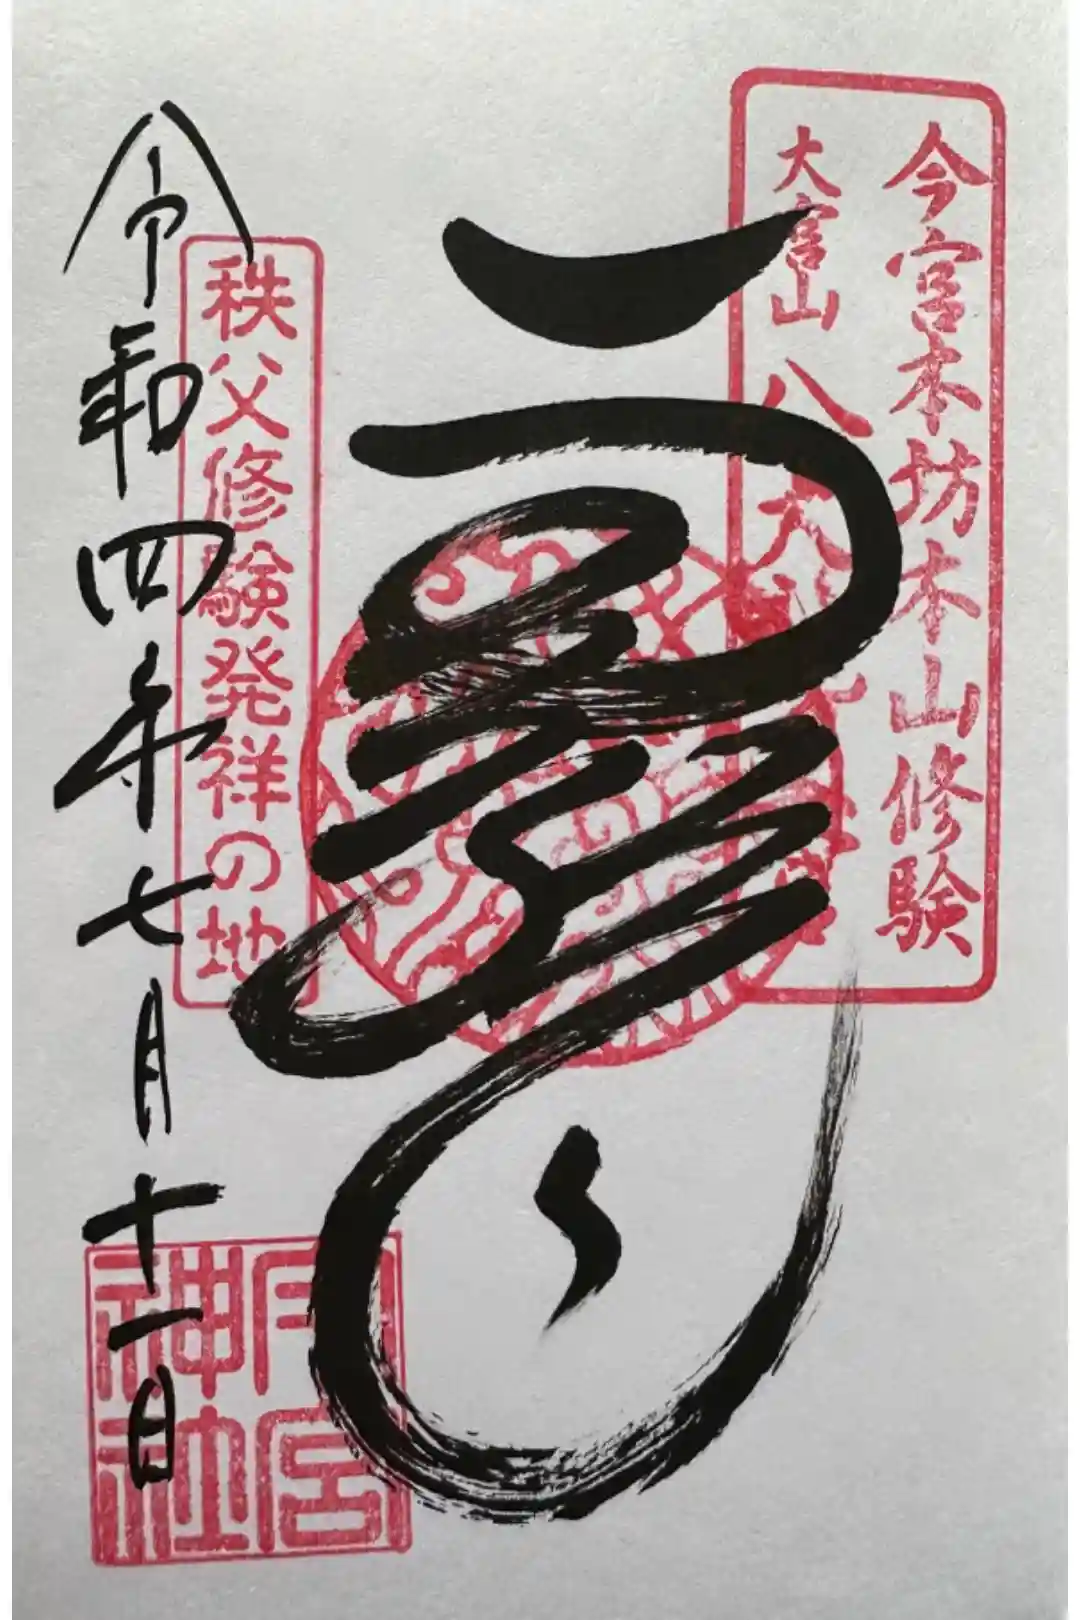 今宮本坊本山修験
大宮山
龍
秩父修験発祥の地
令和四年七月十一日
今宮神社